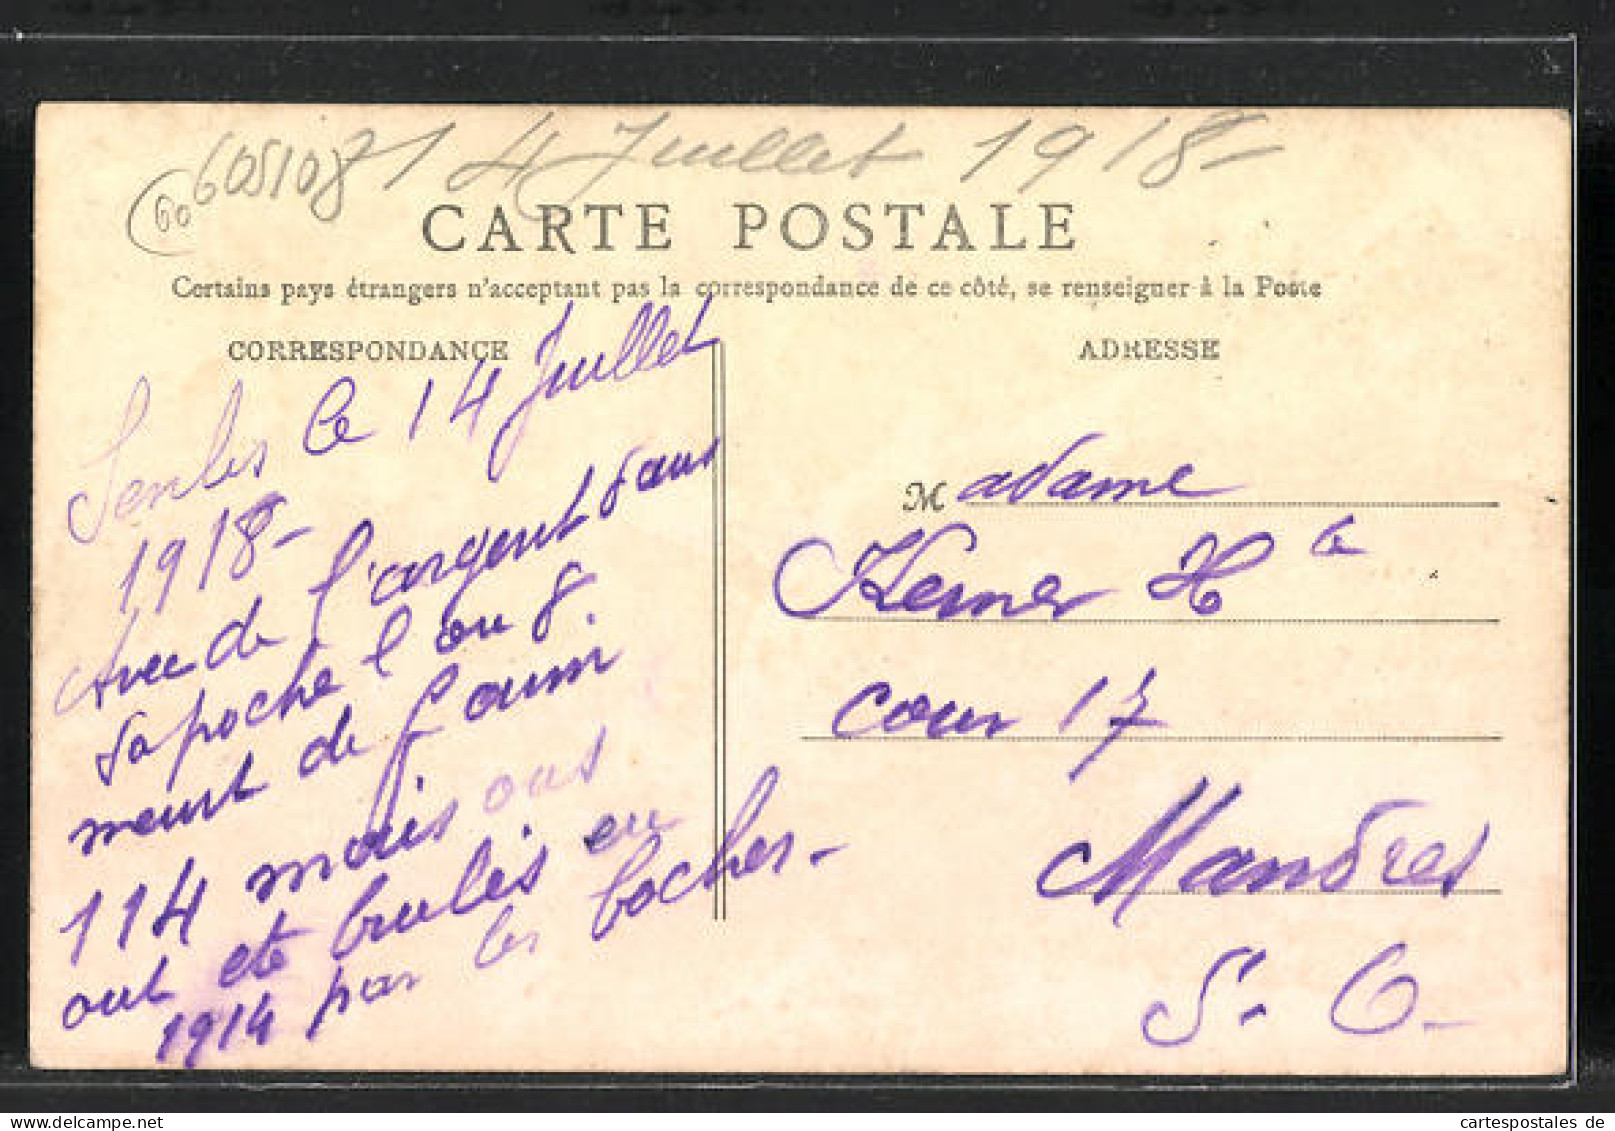 60
605108
14 Juillet 1918-
CARTE POSTALE
Certains pays étrangers n'acceptant pas la correspondance de ce côté, se renseigner à la Poste
CORRESPONDANCE
Senlis le 14 Juillet
1918-
Avec de l'argent dans
sa poche l'on
meurt de faim
114 maisons
ont été brulés en
1914 par les boches-
ADRESSE
Madame
Kerner
cour 17
Mandres
S. O.
cartespostales de